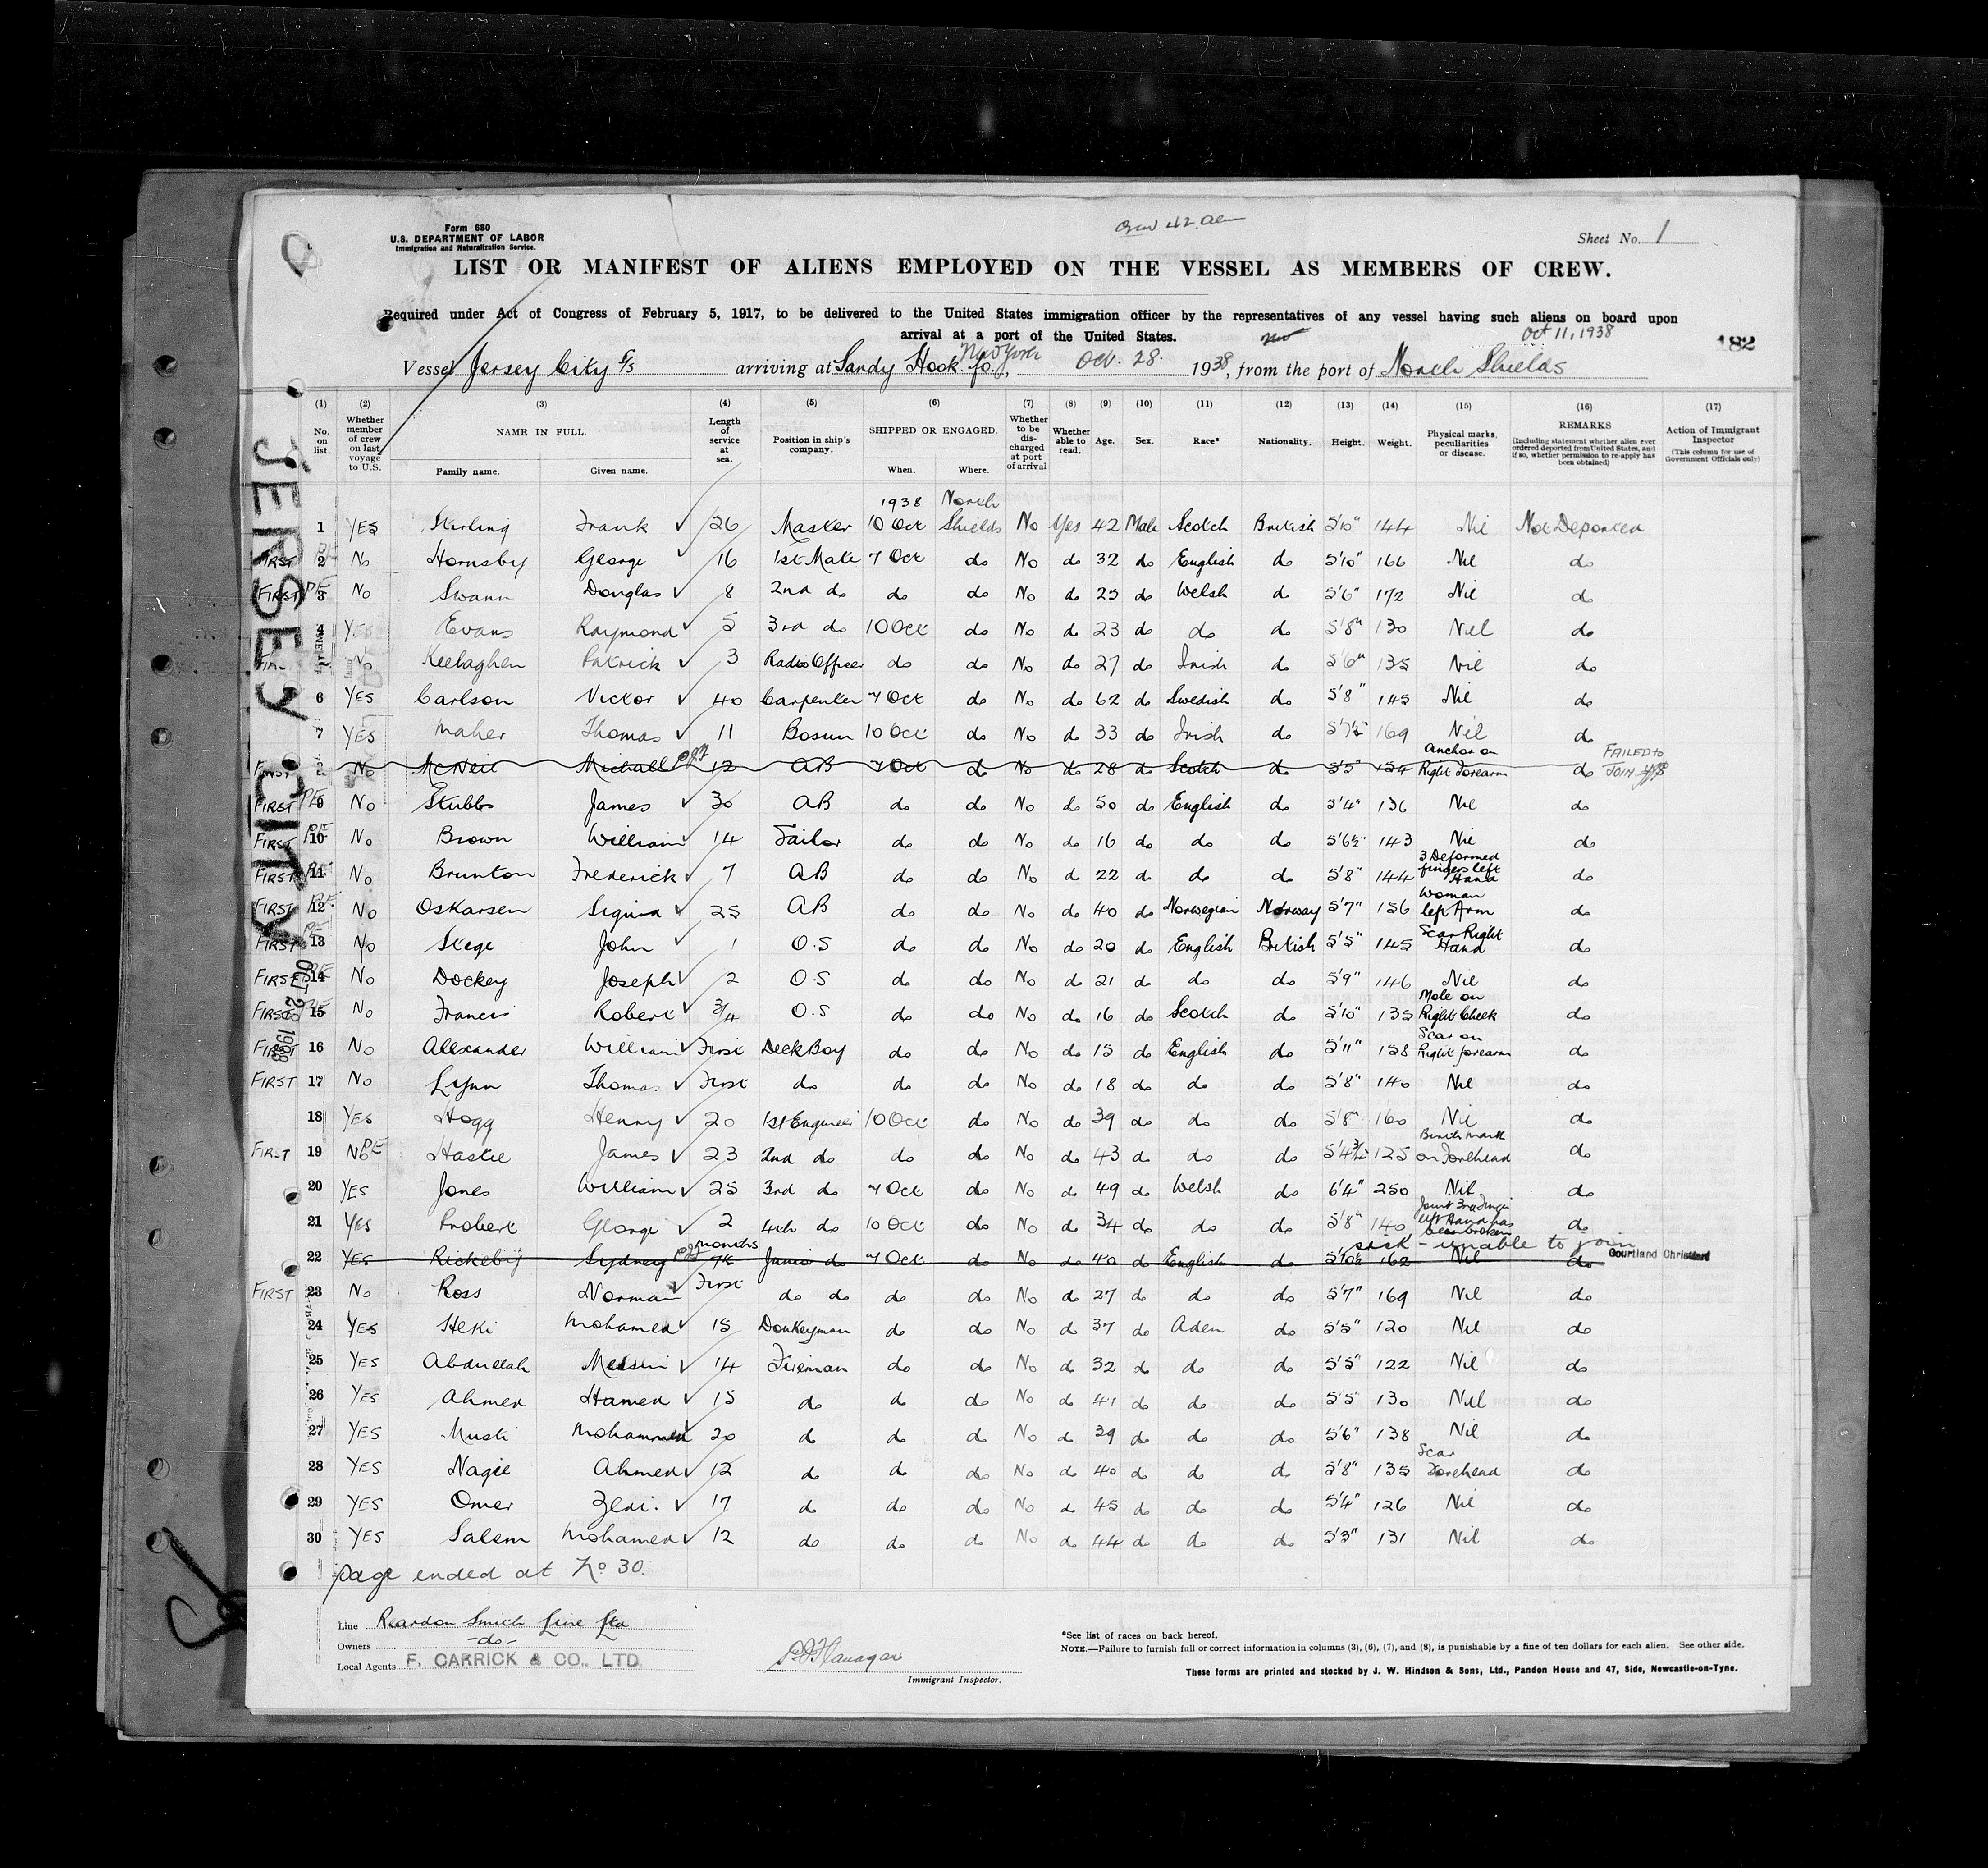 Form 680
U.S. DEPARTMENT OF LABOR
Immigration and Naturalization Service.
Sheet No. 1
LIST OR MANIFEST OF ALIENS EMPLOYED ON THE VESSEL AS MEMBERS OF CREW.
Required under Act of Congress of February 5, 1917, to be delivered to the United States immigration officer by the representatives of any vessel having such aliens on board upon
arrival at a port of the United States.
Oct 11, 1938
182
New York
Vessel Jersey City S/S arriving at Sandy Hook fo., Oct. 28. 1938, from the port of North Shields
(1) (2) (3) (4) (5) (6) (7) (8) (9) (10) (11) (12) (13) (14) (15) (16) (17)
No. on list.
Whether member of crew on last voyage to U.S.
NAME IN FULL.
Family name. Given name.
Length of service at sea.
Position in ship's company.
SHIPPED OR ENGAGED.
When. Where.
Whether to be discharged at port of arrival
Whether able to read.
Age.
Sex.
Race*
Nationality.
Height.
Weight.
Physical marks, peculiarities or disease.
REMARKS
(Including statement whether alien ever ordered deported from United States, and if so, whether permission to re-apply has been obtained)
Action of Immigrant Inspector
(This column for use of Government Officials only)
JERSEY CITY
OCT 28 1938
1938 North
1 YES Stirling Frank 26 Master 10 Oct Shields No Yes 42 Male Scotch British 5'10" 144 Nil Not Deported
FIRST 2 No Hornsby George 16 1st Mate 7 Oct do No do 32 do English do 5'10" 166 Nil do
FIRST 3 No Swann Douglas 8 2nd do do do No do 25 do Welsh do 5'6" 172 Nil do
4 YES Evans Raymond 5 3rd do 10 Oct do No do 23 do do do 5'8" 130 Nil do
No Keelaghen Patrick 3 Radio Officer do do No do 27 do Irish do 5'6" 135 Nil do
6 YES Carlson Victor 40 Carpenter 7 Oct do No do 62 do Swedish do 5'8" 145 Nil do
7 YES Maher Thomas 11 Bosun 10 Oct do No do 33 do Irish do 5'7½" 169 Nil do
FIRST No McNeil Michall 12 AB 7 Oct do No do 28 do Scotch do 5'5" 154 Anchor on Right Forearm do FAILED to JOIN
FIRST 9 No Stubbs James 30 AB do do No do 50 do English do 5'4" 136 Nil do
FIRST 10 No Brown William 14 Sailor do do No do 16 do do do 5'6½" 143 Nil do
FIRST 11 No Brunton Frederick 7 AB do do No do 22 do do do 5'8" 144 3 Deformed fingers left Hand do
FIRST 12 No Oskarsen Sigurd 25 AB do do No do 40 do Norwegian Norway 5'7" 156 Woman left Arm do
FIRST 13 No Stege John 1 O.S do do No do 20 do English British 5'5" 145 Scar Right Hand do
FIRST 14 No Dockey Joseph 2 O.S do do No do 21 do do do 5'9" 146 Nil do
FIRST 15 No Francis Robert 3/4 O.S do do No do 16 do Scotch do 5'10" 135 Mole on Right Cheek do
FIRST 16 No Alexander William First Deck Boy do do No do 15 do English do 5'11" 158 Scar on Right forearm do
FIRST 17 No Lynn Thomas First do do do No do 18 do do do 5'8" 140 Nil do
18 YES Hogg Henry 20 1st Engineer 10 Oct do No do 39 do do do 5'8" 160 Nil do
FIRST 19 No Hastie James 23 2nd do do do No do 43 do do do 5'4¾" 125 Birth mark on Forehead do
20 YES Jones William 25 3rd do 7 Oct do No do 49 do Welsh do 6'4" 250 Nil do
21 YES Probert George 2 4th do 10 Oct do No do 34 do do do 5'8" 140 Joint 3rd finger left Hand has been broken do
sick - unable to join
22 YES Rickeby Sydney months Junior do 7 Oct do No do 40 do English do 5'10½ 162 Nil do Courtland Christiani
FIRST 23 No Ross Norman First do do do do No do 27 do do do 5'7" 169 Nil do
24 YES Heki Mohamed 15 Donkeyman do do No do 37 do Aden do 5'5" 120 Nil do
25 YES Abdullah 14 Fireman do do No do 32 do do do 5'5" 122 Nil do
26 YES Ahmed Hamed 15 do do do No do 41 do do do 5'5" 130 Nil do
27 YES Musti Mohammed 20 do do do No do 39 do do do 5'6" 138 Nil do
28 YES Nagie Ahmed 12 do do do No do 40 do do do 5'8" 135 Scar Forehead do
29 YES Omer Zeri. 17 do do do No do 45 do do do 5'4" 126 Nil do
30 YES Salem Mohamed 12 do do do No do 44 do do do 5'3" 131 Nil do
page ended at No 30.
Line Reardon Smith Line Ltd
Owners -do-
Local Agents F. CARRICK & CO., LTD
P J Flanagan
Immigrant Inspector.
*See list of races on back hereof.
NOTE.—Failure to furnish full or correct information in columns (3), (6), (7), and (8), is punishable by a fine of ten dollars for each alien. See other side.
These forms are printed and stocked by J. W. Hindson & Sons, Ltd., Pandon House and 47, Side, Newcastle-on-Tyne.